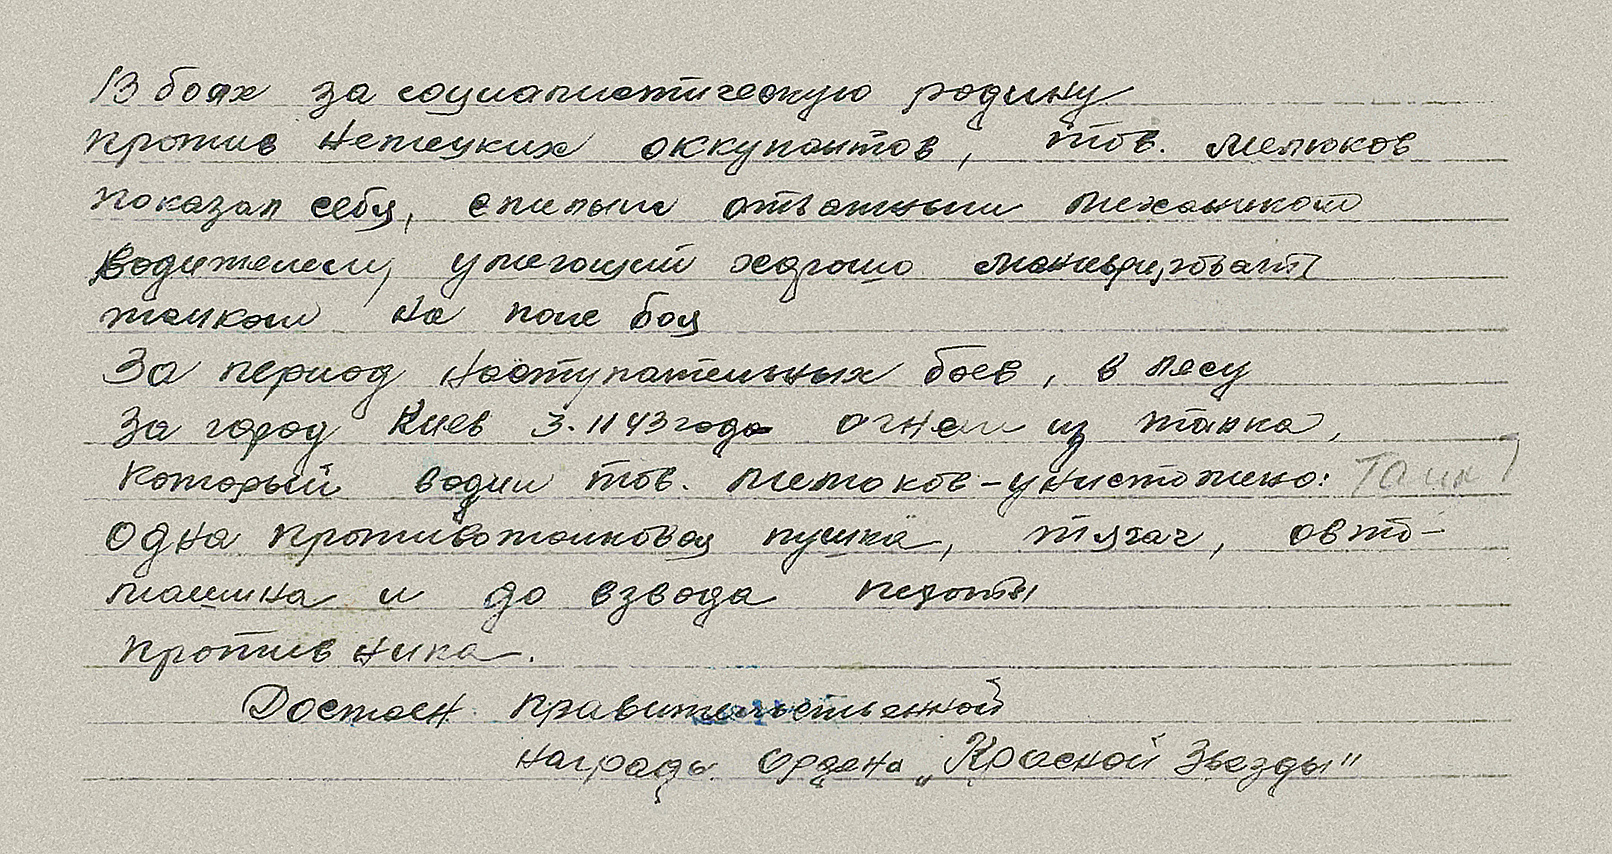 В боях за социалистическую родину
против немецких оккупантов, тов. Мелюков
показал себя, смелым отважным механиком
водителем, умеющий хорошо маневрировать
танком на поле боя
За период наступательных боев, в лесу
За город Киев 3.11 43 года огнем из танка,
который водил тов. Мелюков – уничтожено: Танк
одна противотанковая пушка, тягач, авто-
машина и до взвода пехоты
противника.
Достоен правительственной
награды Ордена „Красной Звезды"